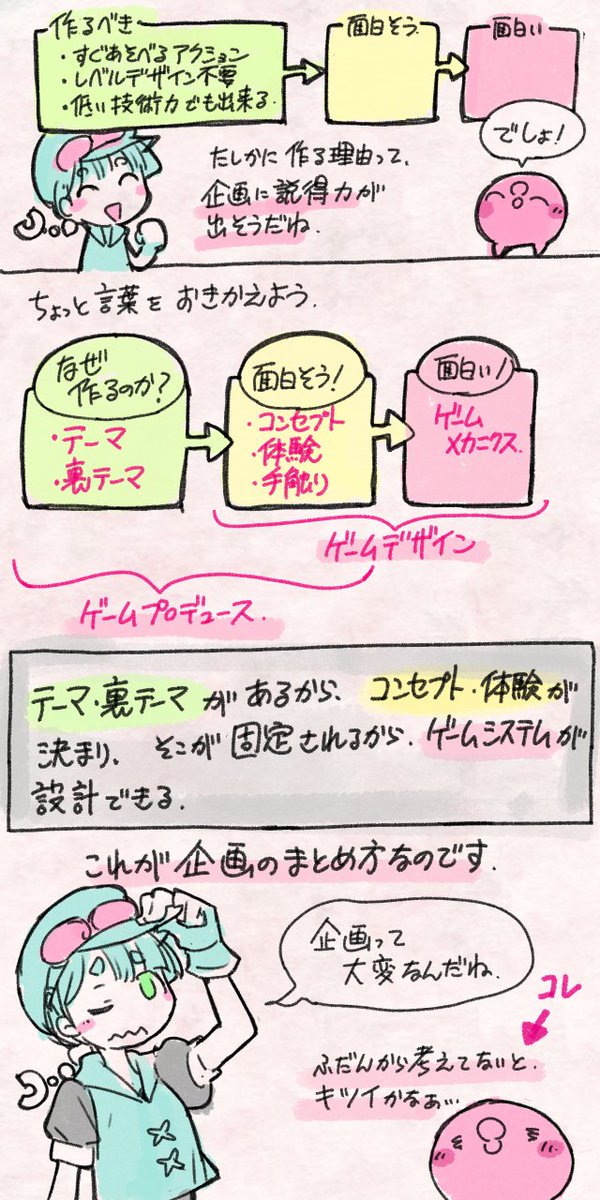 作るべき
・すぐあそべるアクション
・レベルデザイン不要
・低い技術力でも出来る
面白そう
面白い
でしょ!
たしかに作る理由って、
企画に説得力が
出そうだね.
ちょっと言葉をおきかえよう.
なぜ
作るのか?
・テーマ
・裏テーマ
面白そう!
・コンセプト
・体験
・手触り
面白い!
ゲーム
メカニクス.
ゲームデザイン
ゲームプロデュース.
テーマ・裏テーマがあるから、コンセプト・体験が
決まり、そこが固定されるから.ゲームシステムが
設計できる.
これが企画のまとめ方なのです.
企画って
大変なんだね.
コレ
ふだんから考えてないと.
キツイかなぁ…